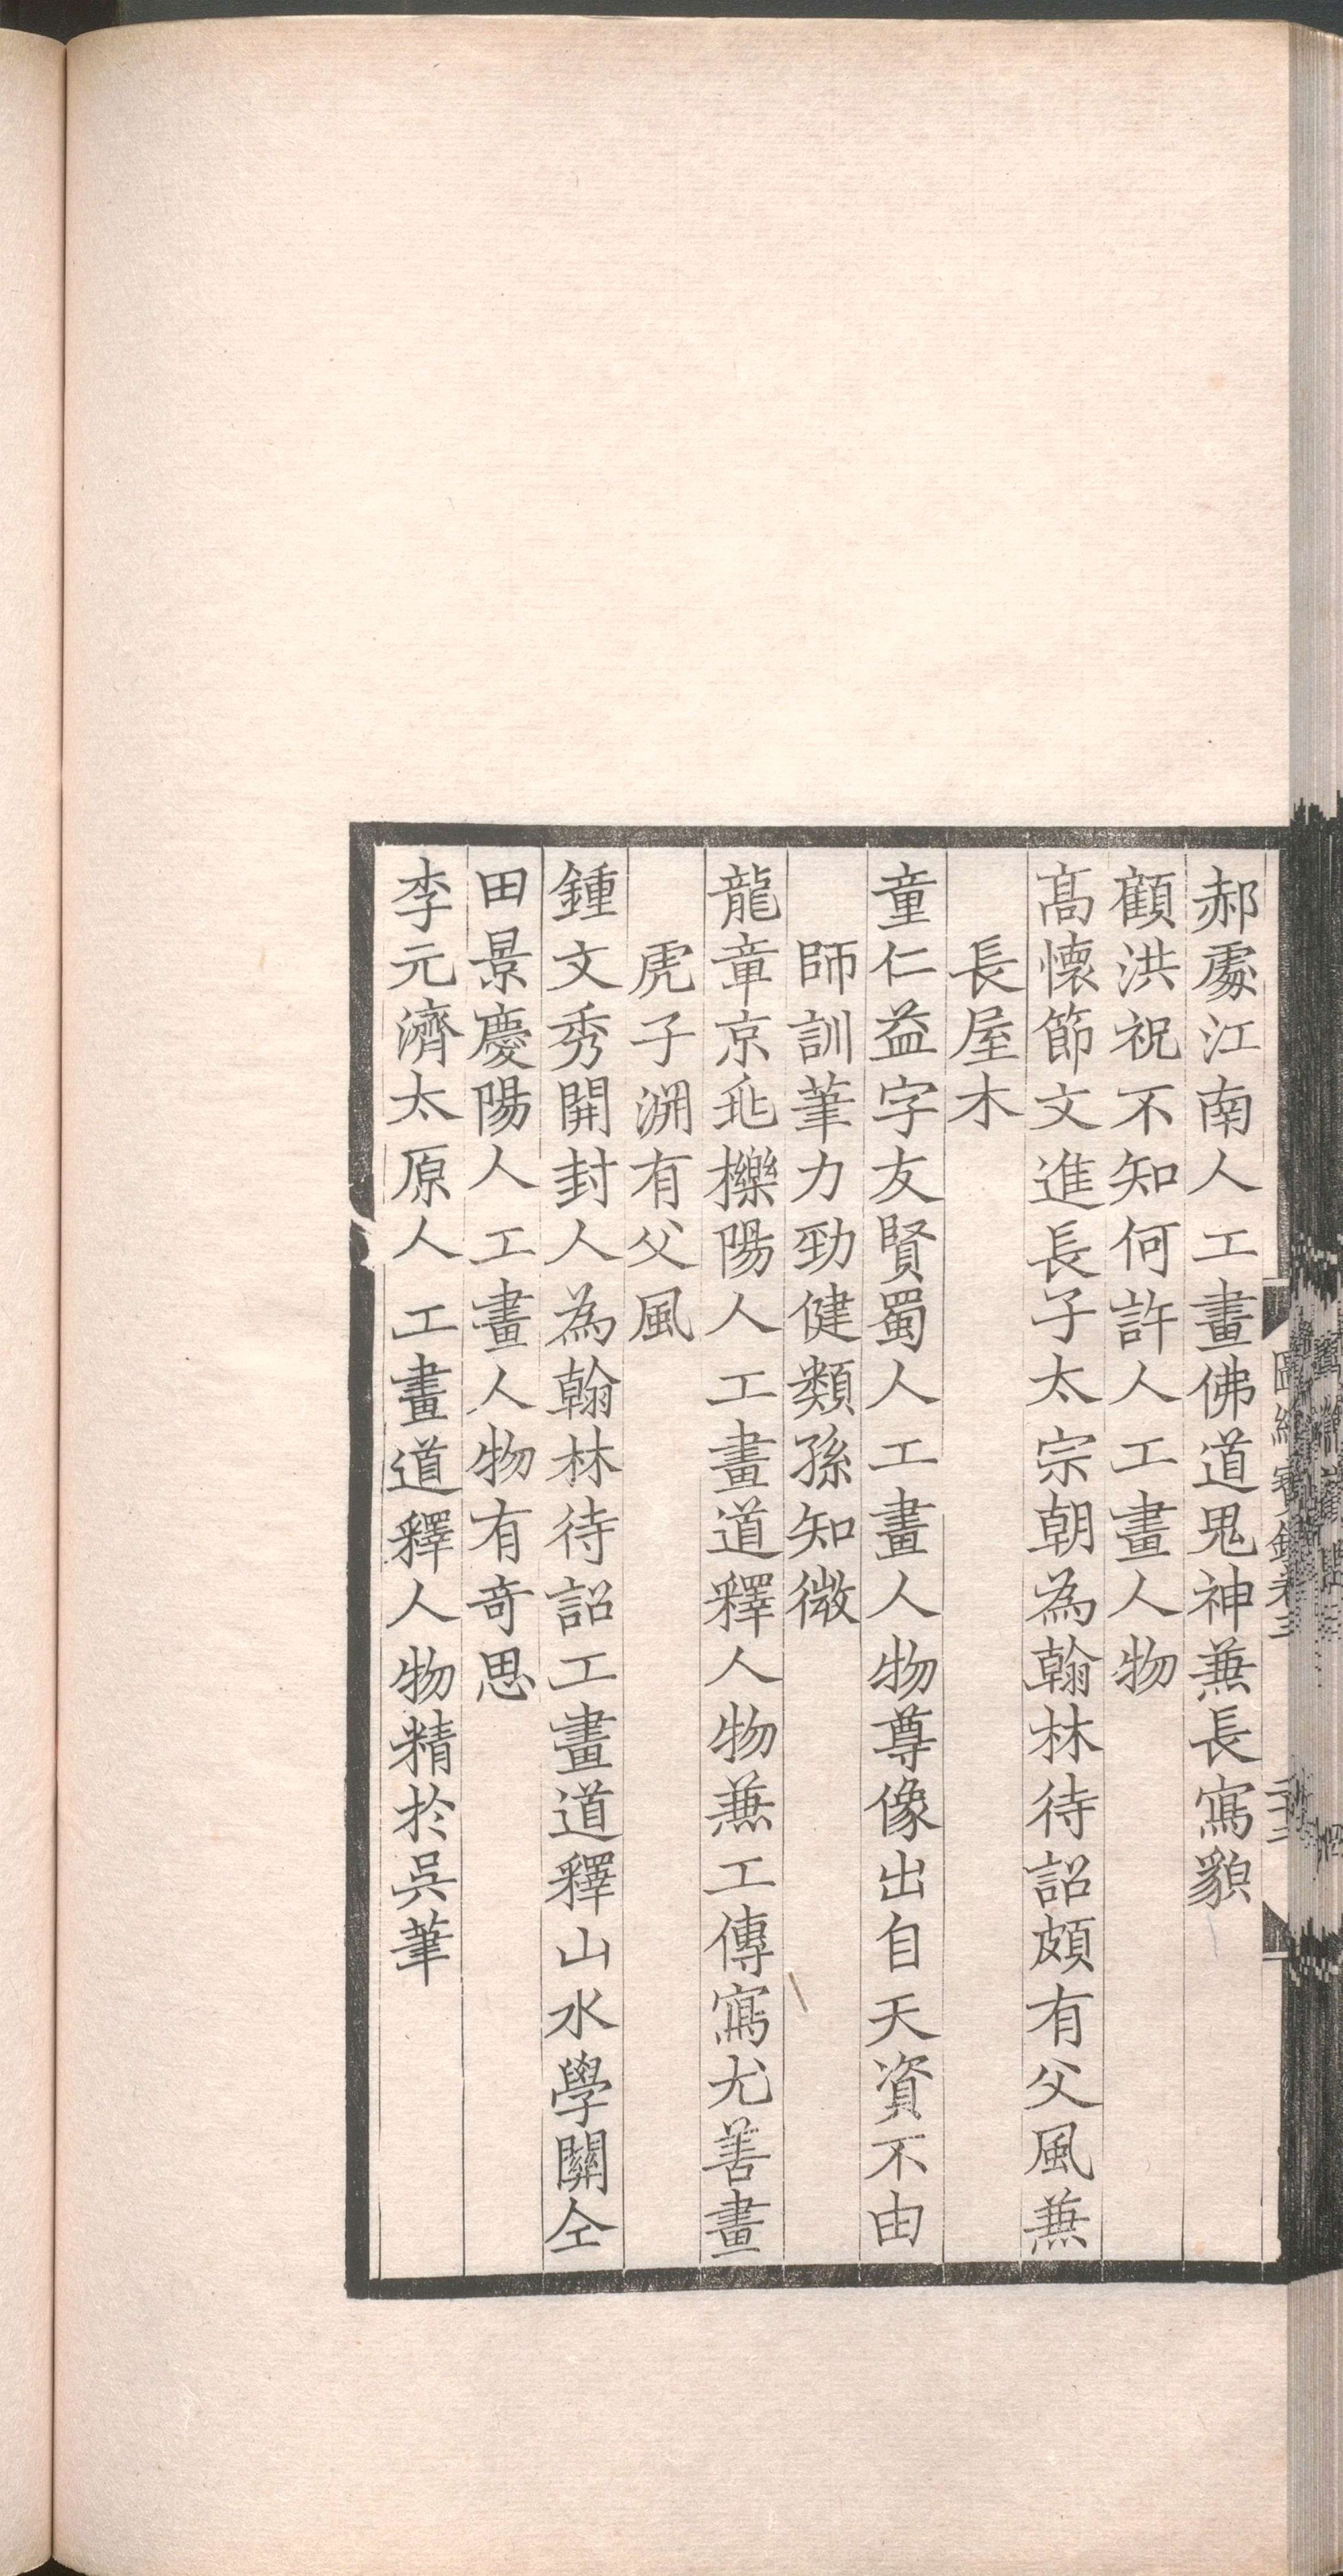 郝處江南人工畫佛道鬼神兼長寫貌
顧洪祝不知何許人工畫人物
髙懷節文進長子太宗朝為翰林待詔頗有父風兼
長屋木
童仁益字友賢蜀人工畫人物尊像出自天資不由
師訓筆力勁健類孫知微
龍章京兆櫟陽人工畫道釋人物兼工傳寫尤善畫
虎子渊有父風
鍾文秀開封人為翰林待詔工畫道釋山水學關仝
田景慶陽人工畫人物有奇思
李元濟太原人工畫道釋人物精於吳筆